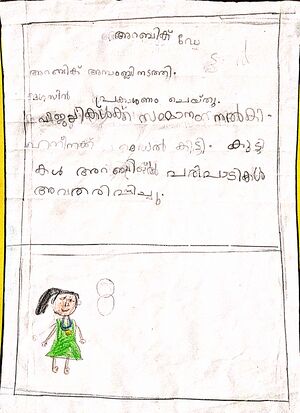 അറബിക് ഡേ
അറബിക് അസംബ്ലി നടത്തി.
മാഗസിൻ പ്രകാശനം ചെയ്തു.
വിജയികൾക്ക് സമ്മാനം നൽകി.
മെഡൽ കിട്ടി. കുട്ടി
കൾ അറബിയിൽ പരിപാടികൾ
അവതരിപ്പിച്ചു.